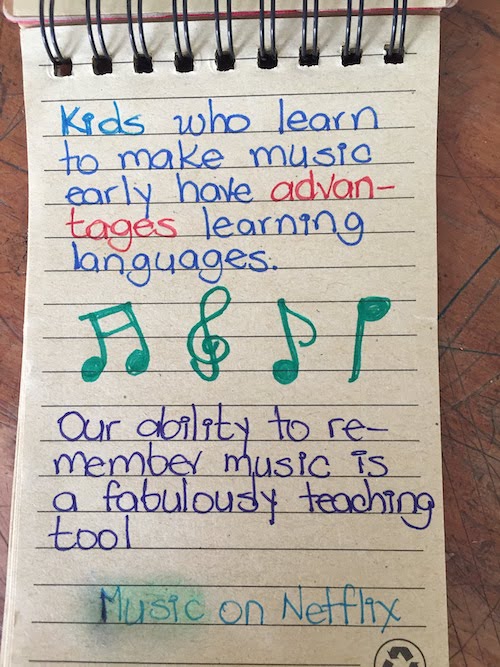 Kids who learn
to make music
early have advan-
tages learning
languages.
Our ability to re-
member music is
a fabulously teaching
tool
Music on Netflix